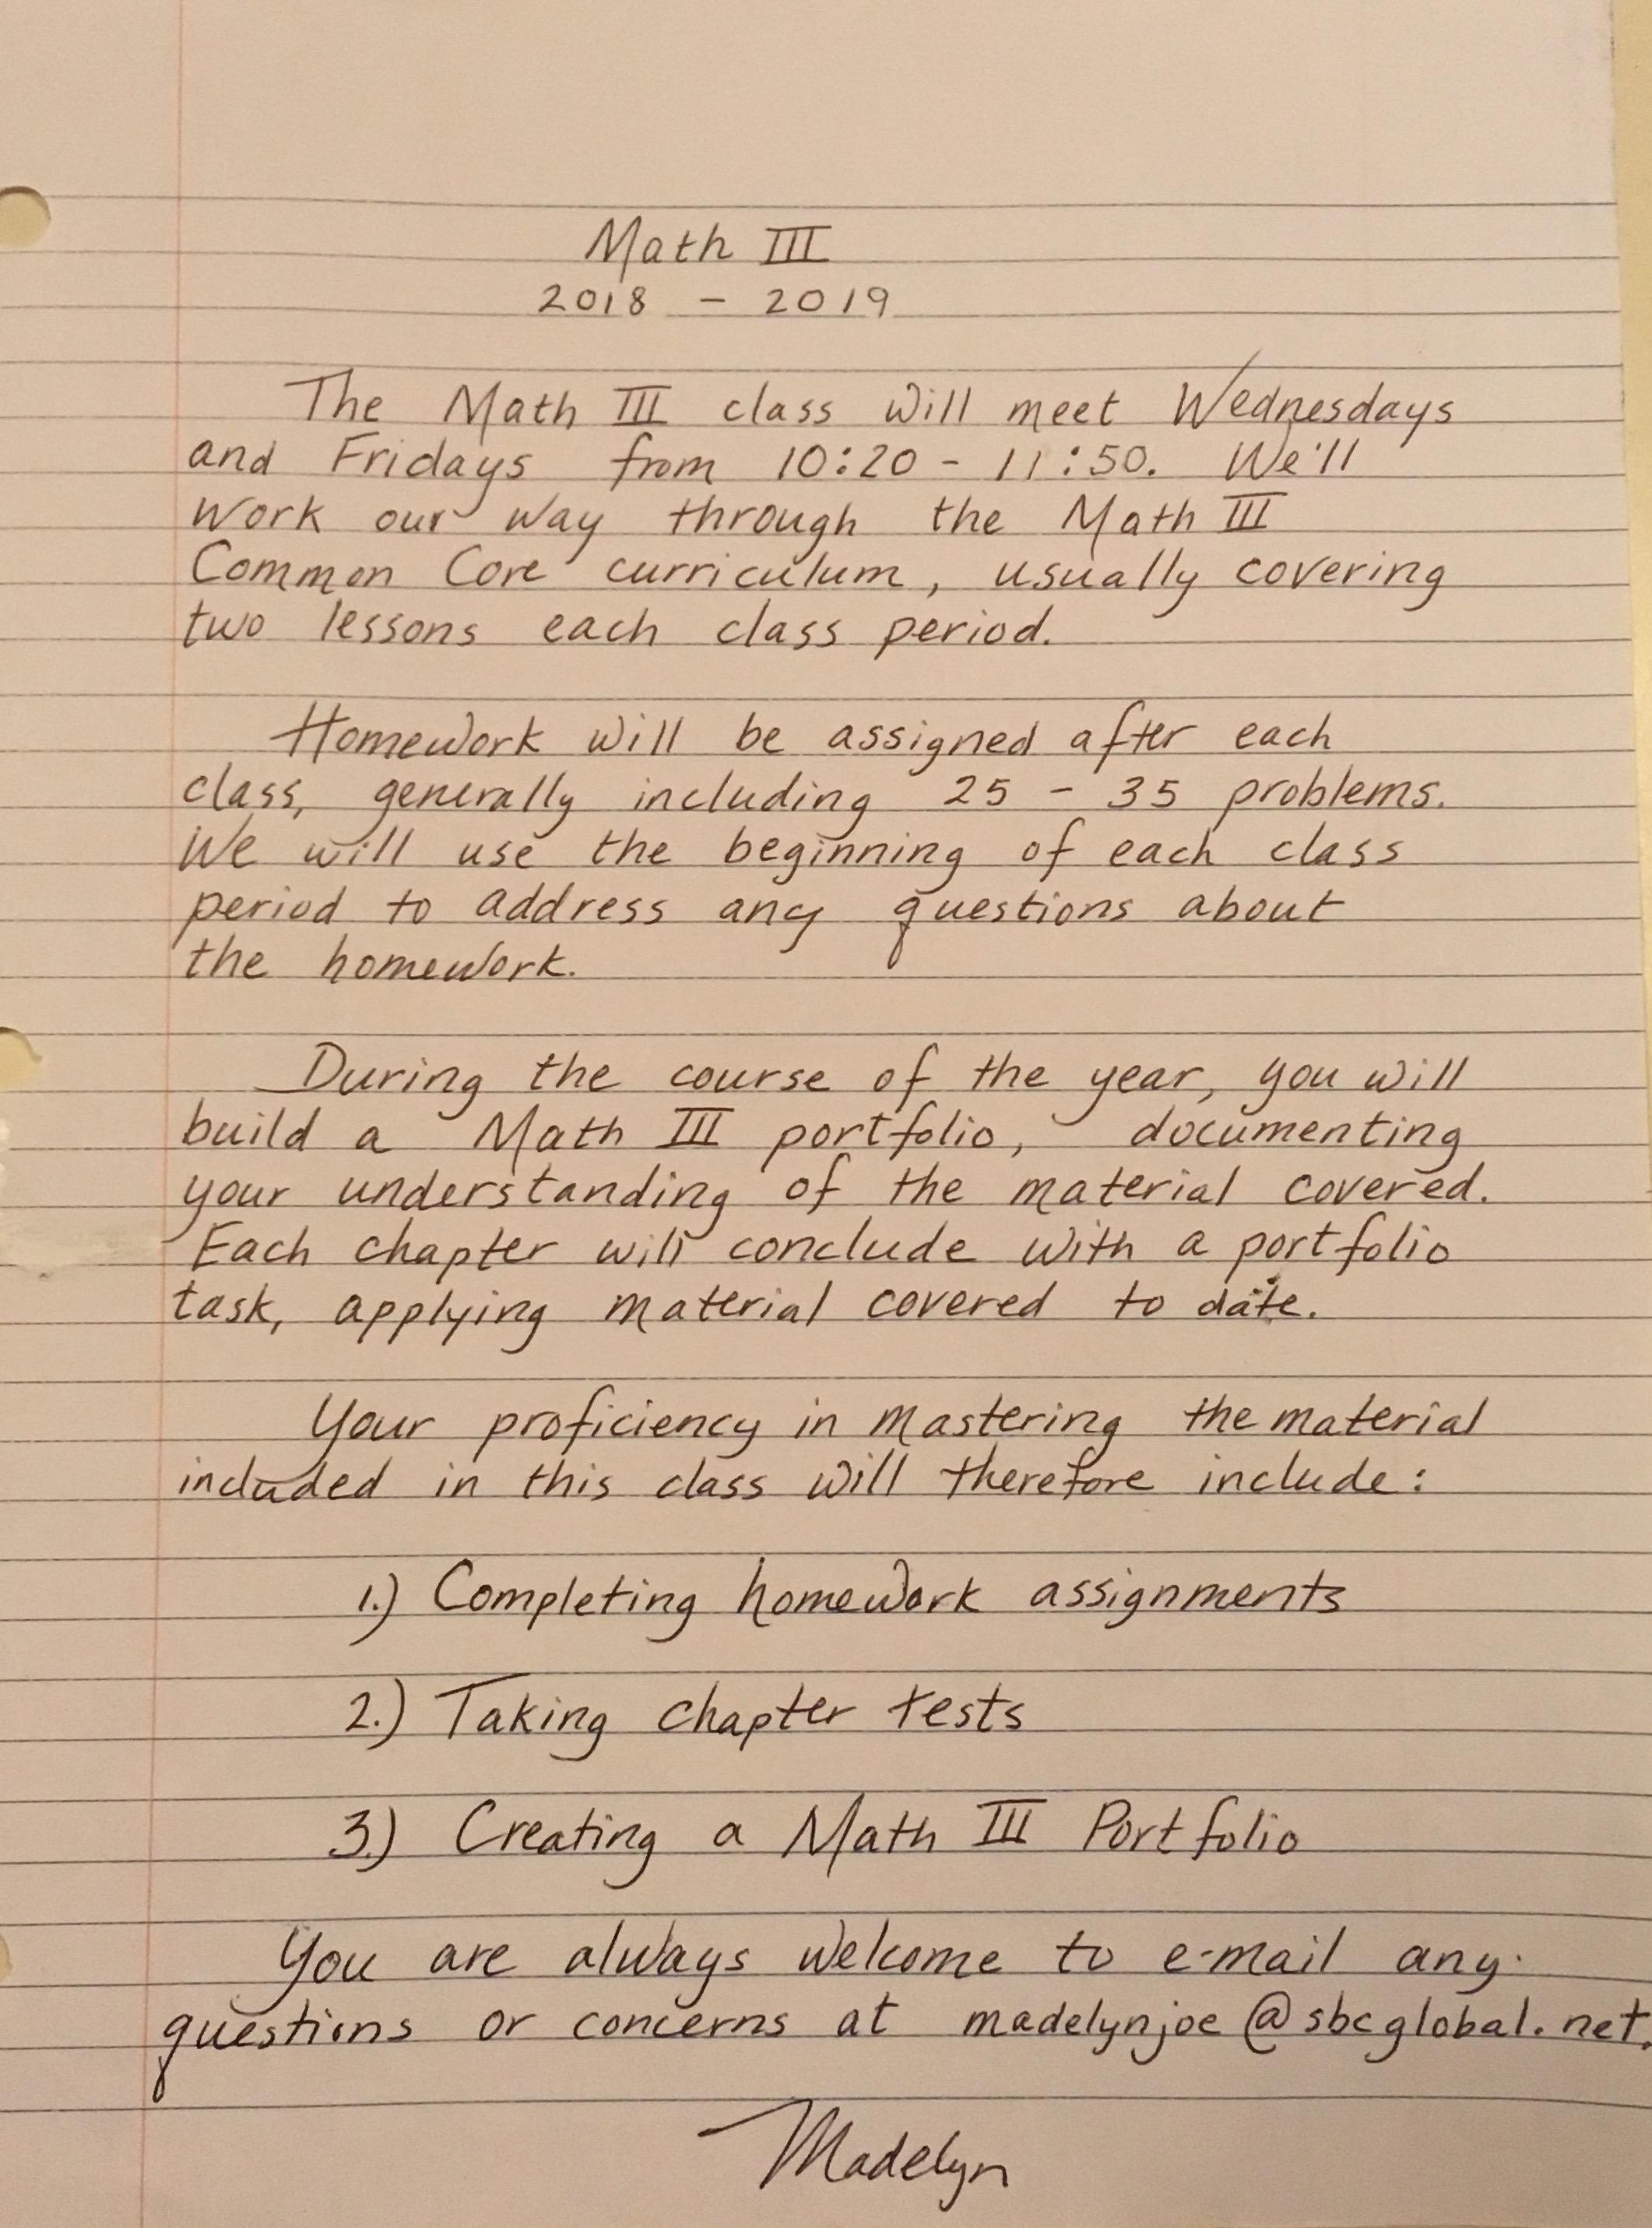 Math III
2018 - 2019
The Math III class will meet Wednesdays
and Fridays from 10:20 - 11:50. We'll
work our way through the Math III
Common Core curriculum, usually covering
two lessons each class period.
Homework will be assigned after each
class, generally including 25 - 35 problems.
We will use the beginning of each class
period to address any questions about
the homework.
During the course of the year, you will
build a Math III portfolio, documenting
your understanding of the material covered.
Each chapter will conclude with a portfolio
task, applying material covered to date.
Your proficiency in mastering the material
included in this class will therefore include:
1.) Completing homework assignments
2.) Taking chapter tests
3.) Creating a Math III Portfolio
You are always welcome to e-mail any
questions or concerns at madelynjoe@sbcglobal.net.
Madelyn